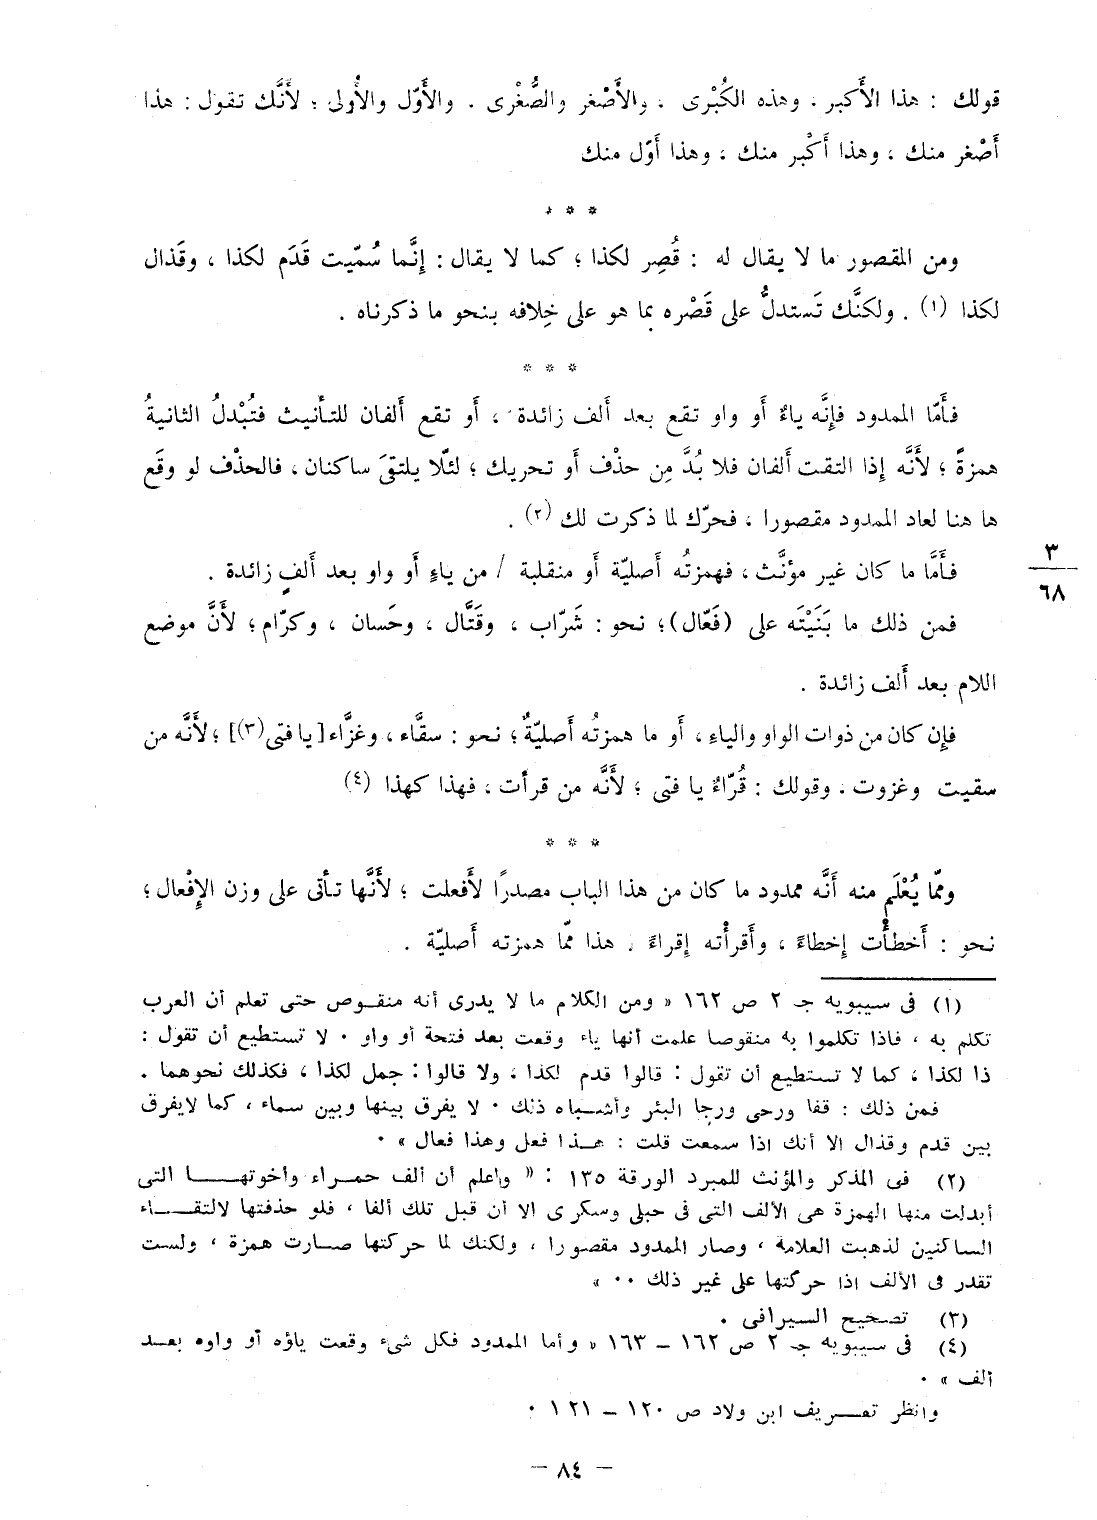 قولك : هذا الأَكبر ، وهذه الكُبْرى ، والأَصْغر والصُّغْرى . والأَوّل والأُولى ؛ لأَنَّك تقول : هذا
أَصْغر منك ، وهذا أَكْبر منك ، وهذا أَوّل منك
* * *
ومن المقصور ما لا يقال له : قُصِر لكذا ؛ كما لا يقال : إِنَّما سُمّيت قَدَم لكذا ، وقَذال
لكذا (١) . ولكنَّك تَستدلُّ على قَصْره بما هو على خِلافه بنحو ما ذكرناه .
* * *
فأَمّا الممدود فإِنَّه ياءٌ أَو واو تقع بعد أَلف زائدة ، أَو تقع أَلفان للتأنيث فتُبْدلُ الثانيةُ
همزةً ؛ لأَنَّه إِذا التقت أَلفان فلا بُدَّ مِن حذْف أَو تحريك ؛ لئلّا يلتقىَ ساكنان ، فالحذْف لو وقَع
ها هنا لعاد الممدود مقصورا ، فحرّك لما ذكرت لك (٢) .
فأَمَّا ما كان غير مؤنَّث ، فهمزتُه أَصليّة أَو منقلبة / من ياءٍ أَو واو بعد أَلفٍ زائدة .
٣
٦٨
فمن ذلك ما بَنَيْتَه على (فَعّال) ؛ نحو : شَرّاب ، وقَتَّال ، وحَسان ، وكرّام ؛ لأَنَّ موضع
اللام بعد أَلف زائدة .
فإِن كان من ذوات الواو والياءِ ، أَو ما همزتُه أَصليّةٌ ؛ نحو : سقَّاء ، وغزَّاء [ يا فتى (٣)] ؛ لأَنَّه من
سقيت وغزوت . وقولك : قُرّاءٌ يا فتى ؛ لأَنَّه من قرأت ، فهذا كهذا (٤)
* * *
وممّا يُعْلَم منه أَنَّه ممدود ما كان من هذا الباب مصدرًا لأَفعلت ؛ لأَنَّها تأتى على وزن الإِفْعال ؛
نحو : أَخطأْت إِخطاءً ، وأَقرأْته إِقراءً . هذا ممّا همزته أَصليّة .
(١) فى سيبويه جـ ٢ ص ١٦٢ « ومن الكلام ما لا يدرى أنه منقوص حتى تعلم أن العرب
تكلم به ، فاذا تكلموا به منقوصا علمت أنها ياء وقعت بعد فتحة أو واو . لا تستطيع أن تقول :
ذا لكذا ، كما لا تستطيع أن تقول : قالوا قدم لكذا ، ولا قالوا : جمل لكذا ، فكذلك نحوهما .
فمن ذلك : قفا ورحى ورجا البئر وأشباه ذلك . لا يفرق بينها وبين سماء ، كما لايفرق
بين قدم وقذال الا أنك اذا سمعت قلت : هذا فعل وهذا فعال » .
(٢) فى المذكر والمؤنث للمبرد الورقة ١٣٥ : « واعلم أن ألف حمراء وأخوتها التى
أبدلت منها الهمزة هى الألف التى فى حبلى وسكرى الا أن قبل تلك ألفا ، فلو حذفتها لالتقاء
الساكنين لذهبت العلامة ، وصار الممدود مقصورا ، ولكنك لما حركتها صارت همزة ، ولست
تقدر فى الألف اذا حركتها على غير ذلك .. »
(٣) تصحيح السيرافى .
(٤) فى سيبويه جـ ٢ ص ١٦٢ – ١٦٣ « وأما الممدود فكل شىء وقعت ياؤه أو واوه بعد
ألف » .
وانظر تعريف ابن ولاد ص ١٢٠ – ١٢١ .
– ٨٤ –